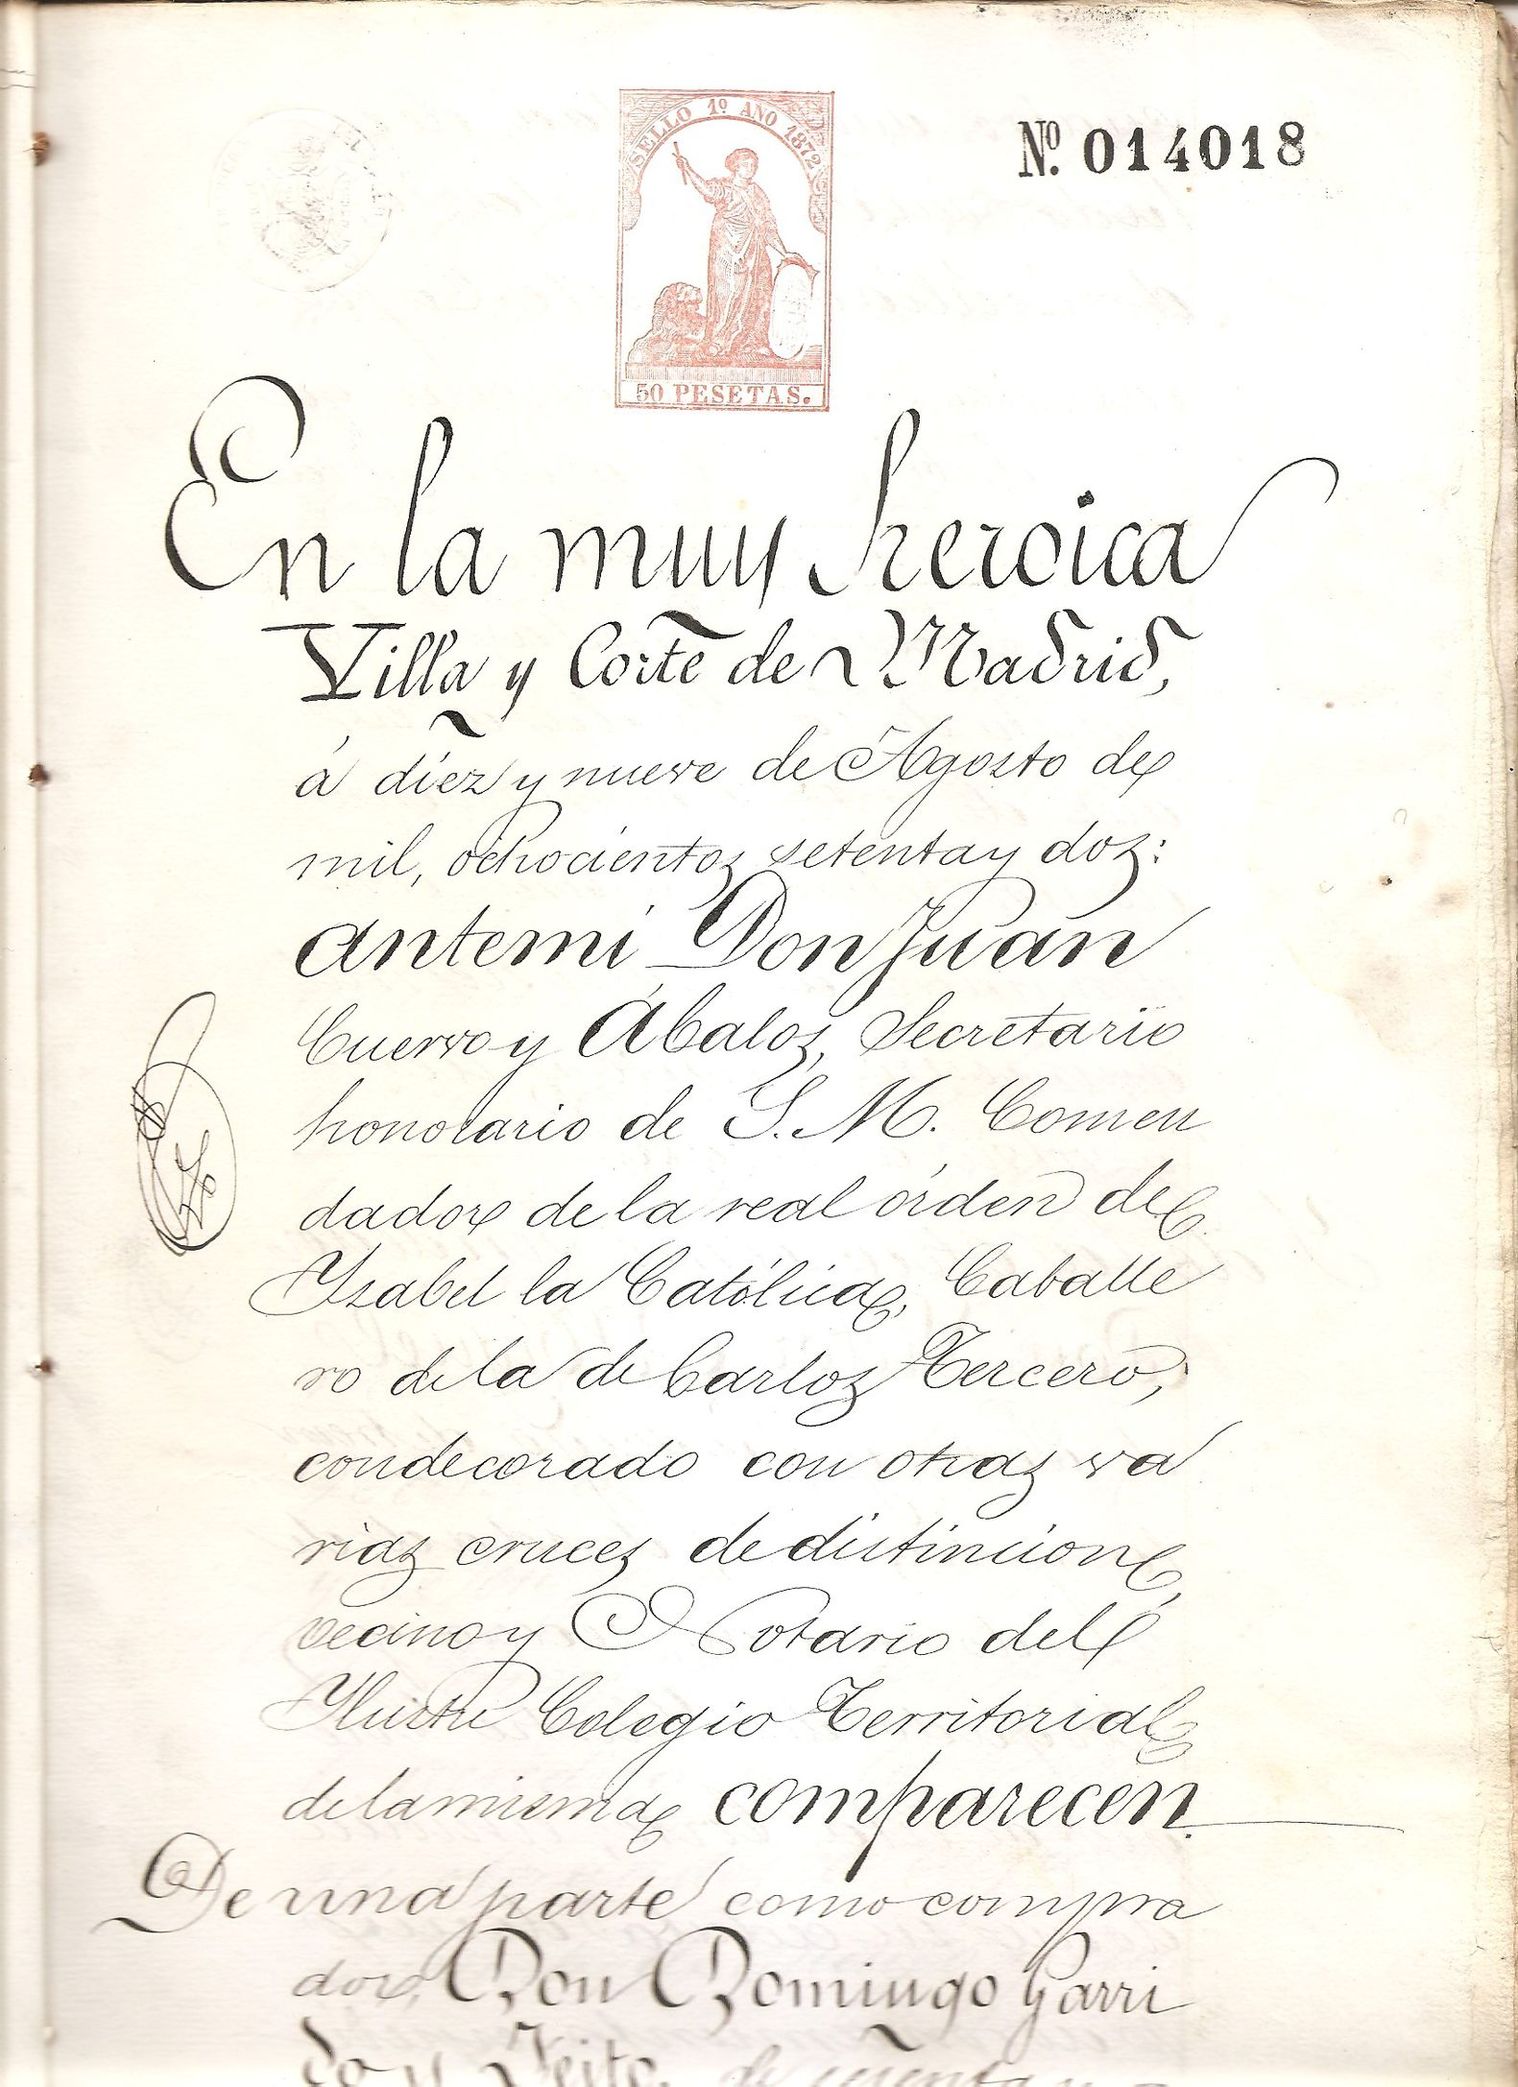 SELLO 1º AÑO 1872
Nº. 014018
50 PESETAS.
En la muy heroica
Villa y Corte de Madrid,
á diez y nueve de Agosto de
mil, ochocientos setenta y dos:
ante mi Don Juan
Cuervo y Ábalos, Secretario
honorario de S. M. Comen
dador de la real órden de
Ysabel la Católica, Caballe
ro de la de Carlos Tercero,
condecorado con otras va
rias cruces de distincion,
vecino y Notario del
Ylustre Colegio Territorial
de la misma comparecen.
De una parte como compra
dor, Don Domingo Garri
do y Feito, de cuenta y